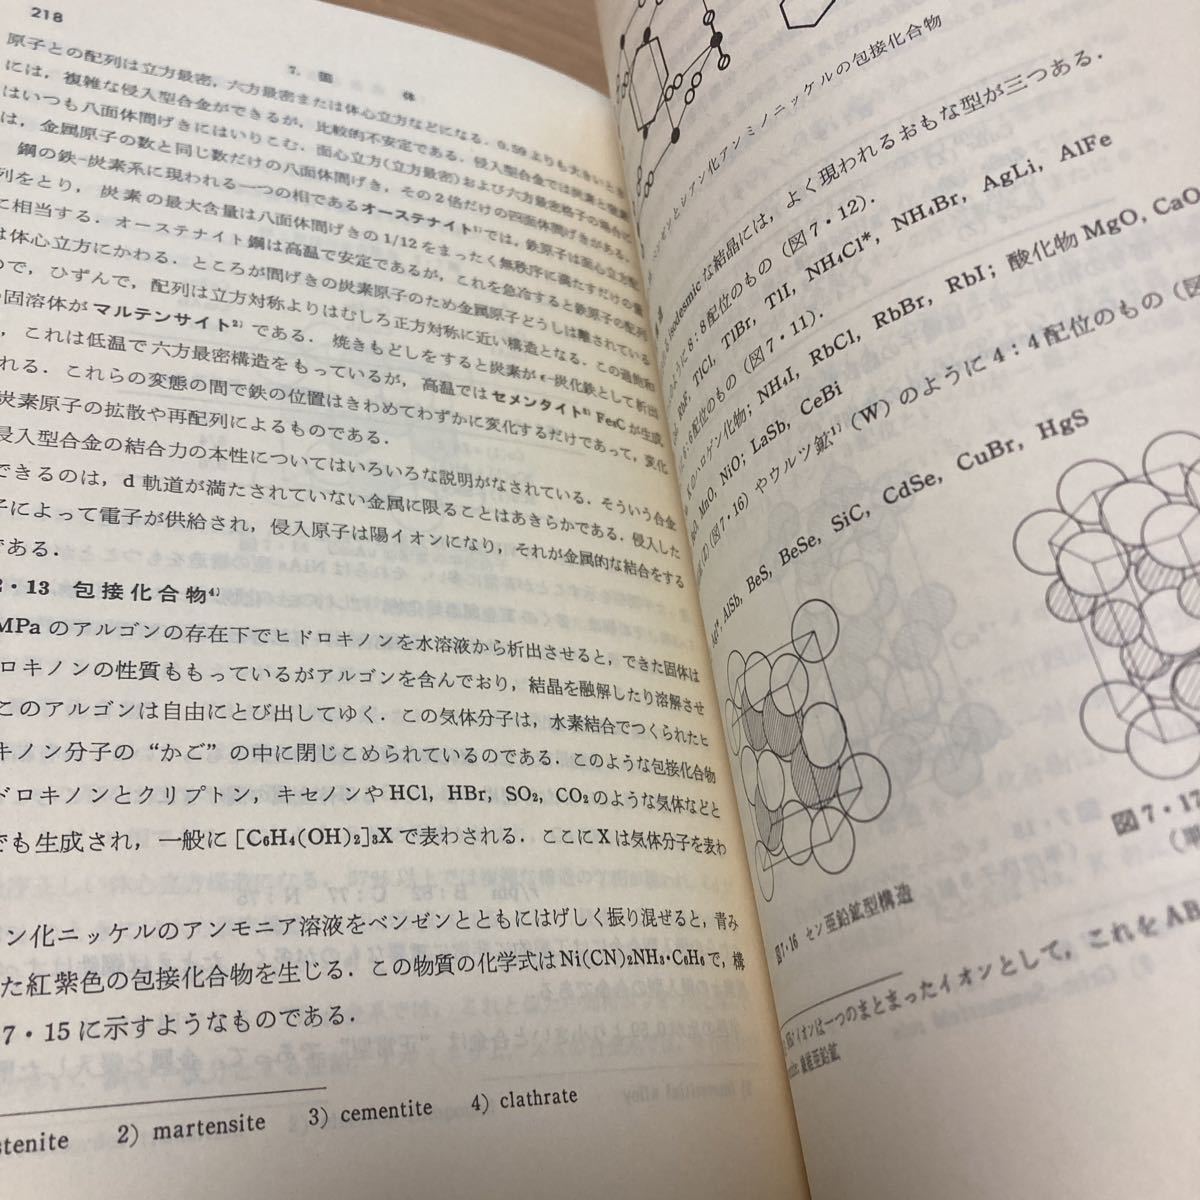 218
7. 固体
原子との配列は立方最密，六方最密または体心立方などになる．0.59よりも大きいとき
には，複雑な侵入型合金ができるが，比較的不安定である．侵入型合金では炭素と窒素
はいつも八面体間げきにはいりこむ．面心立方(立方最密)および六方最密格子の場合に
は，金属原子の数と同じ数だけの八面体間げき，その2倍だけの四面体間げきがある．
鋼の鉄-炭素系に現われる一つの相であるオーステナイト¹⁾では，鉄原子は面心立方配
列をとり，炭素の最大含量は八面体間げきの1/12をまったく無秩序に満たすだけの量
に相当する．オーステナイト鋼は高温で安定であるが，これを急冷すると鉄原子の配列
は体心立方にかわる．ところが間げきの炭素原子のため金属原子どうしは離されている
ので，ひずんで，配列は立方対称よりはむしろ正方対称に近い構造となる．この過飽和
固溶体がマルテンサイト²⁾である．焼きもどしをすると炭素がε-炭化鉄として析出
，これは低温で六方最密構造をもっているが，高温ではセメンタイト³⁾ Fe₃Cが生成
れる．これらの変態の間で鉄の位置はきわめてわずかに変化するだけであって，変化
炭素原子の拡散や再配列によるものである．
侵入型合金の結合力の本性についてはいろいろな説明がなされている．そういう合金
できるのは，d軌道が満たされていない金属に限ることはあきらかである．侵入した
子によって電子が供給され，侵入原子は陽イオンになり，それが金属的な結合をする
である．
2・13 包接化合物⁴⁾
MPaのアルゴンの存在下でヒドロキノンを水溶液から析出させると，できた固体は
ロキノンの性質ももっているがアルゴンを含んでおり，結晶を融解したり溶解させ
このアルゴンは自由にとび出してゆく．この気体分子は，水素結合でつくられたヒ
キノン分子の“かご”の中に閉じこめられているのである．このような包接化合物
ドロキノンとクリプトン，キセノンやHCl, HBr, SO₂, CO₂のような気体などと
でも生成され，一般に [C₆H₄(OH)₂]₃X で表わされる．ここにXは気体分子を表わ
ン化ニッケルのアンモニア溶液をベンゼンとともにはげしく振り混ぜると，青み
た紅紫色の包接化合物を生じる．この物質の化学式はNi(CN)₂NH₃・C₆H₆で，構
7・15に示すようなものである．
stenite 2) martensite 3) cementite 4) clathrate
ベンゼンとシアン化アンミノニッケルの包接化合物
isodesmic な結晶には，よく現われるおもな型が三つある．
のように8：8配位のもの (図7・12)．
RbF, TlCl, TlBr, TlI, NH₄Cl*, NH₄Br, AgLi, AlFe
6配位のもの (図7・11)．
Kのハロゲン化物; NH₄I, RbCl, RbBr, RbI; 酸化物MgO, CaO
MnO, NiO; LaSb, CeBi
(図7・16) やウルツ鉱¹⁾ (W) のように4：4配位のもの (図
AlSb, BeS, BeSe, SiC, CdSe, CuBr, HgS
図7・16 セン亜鉛鉱型構造
図7・17
(単
イオンは一つのまとまったイオンとして，これをAB